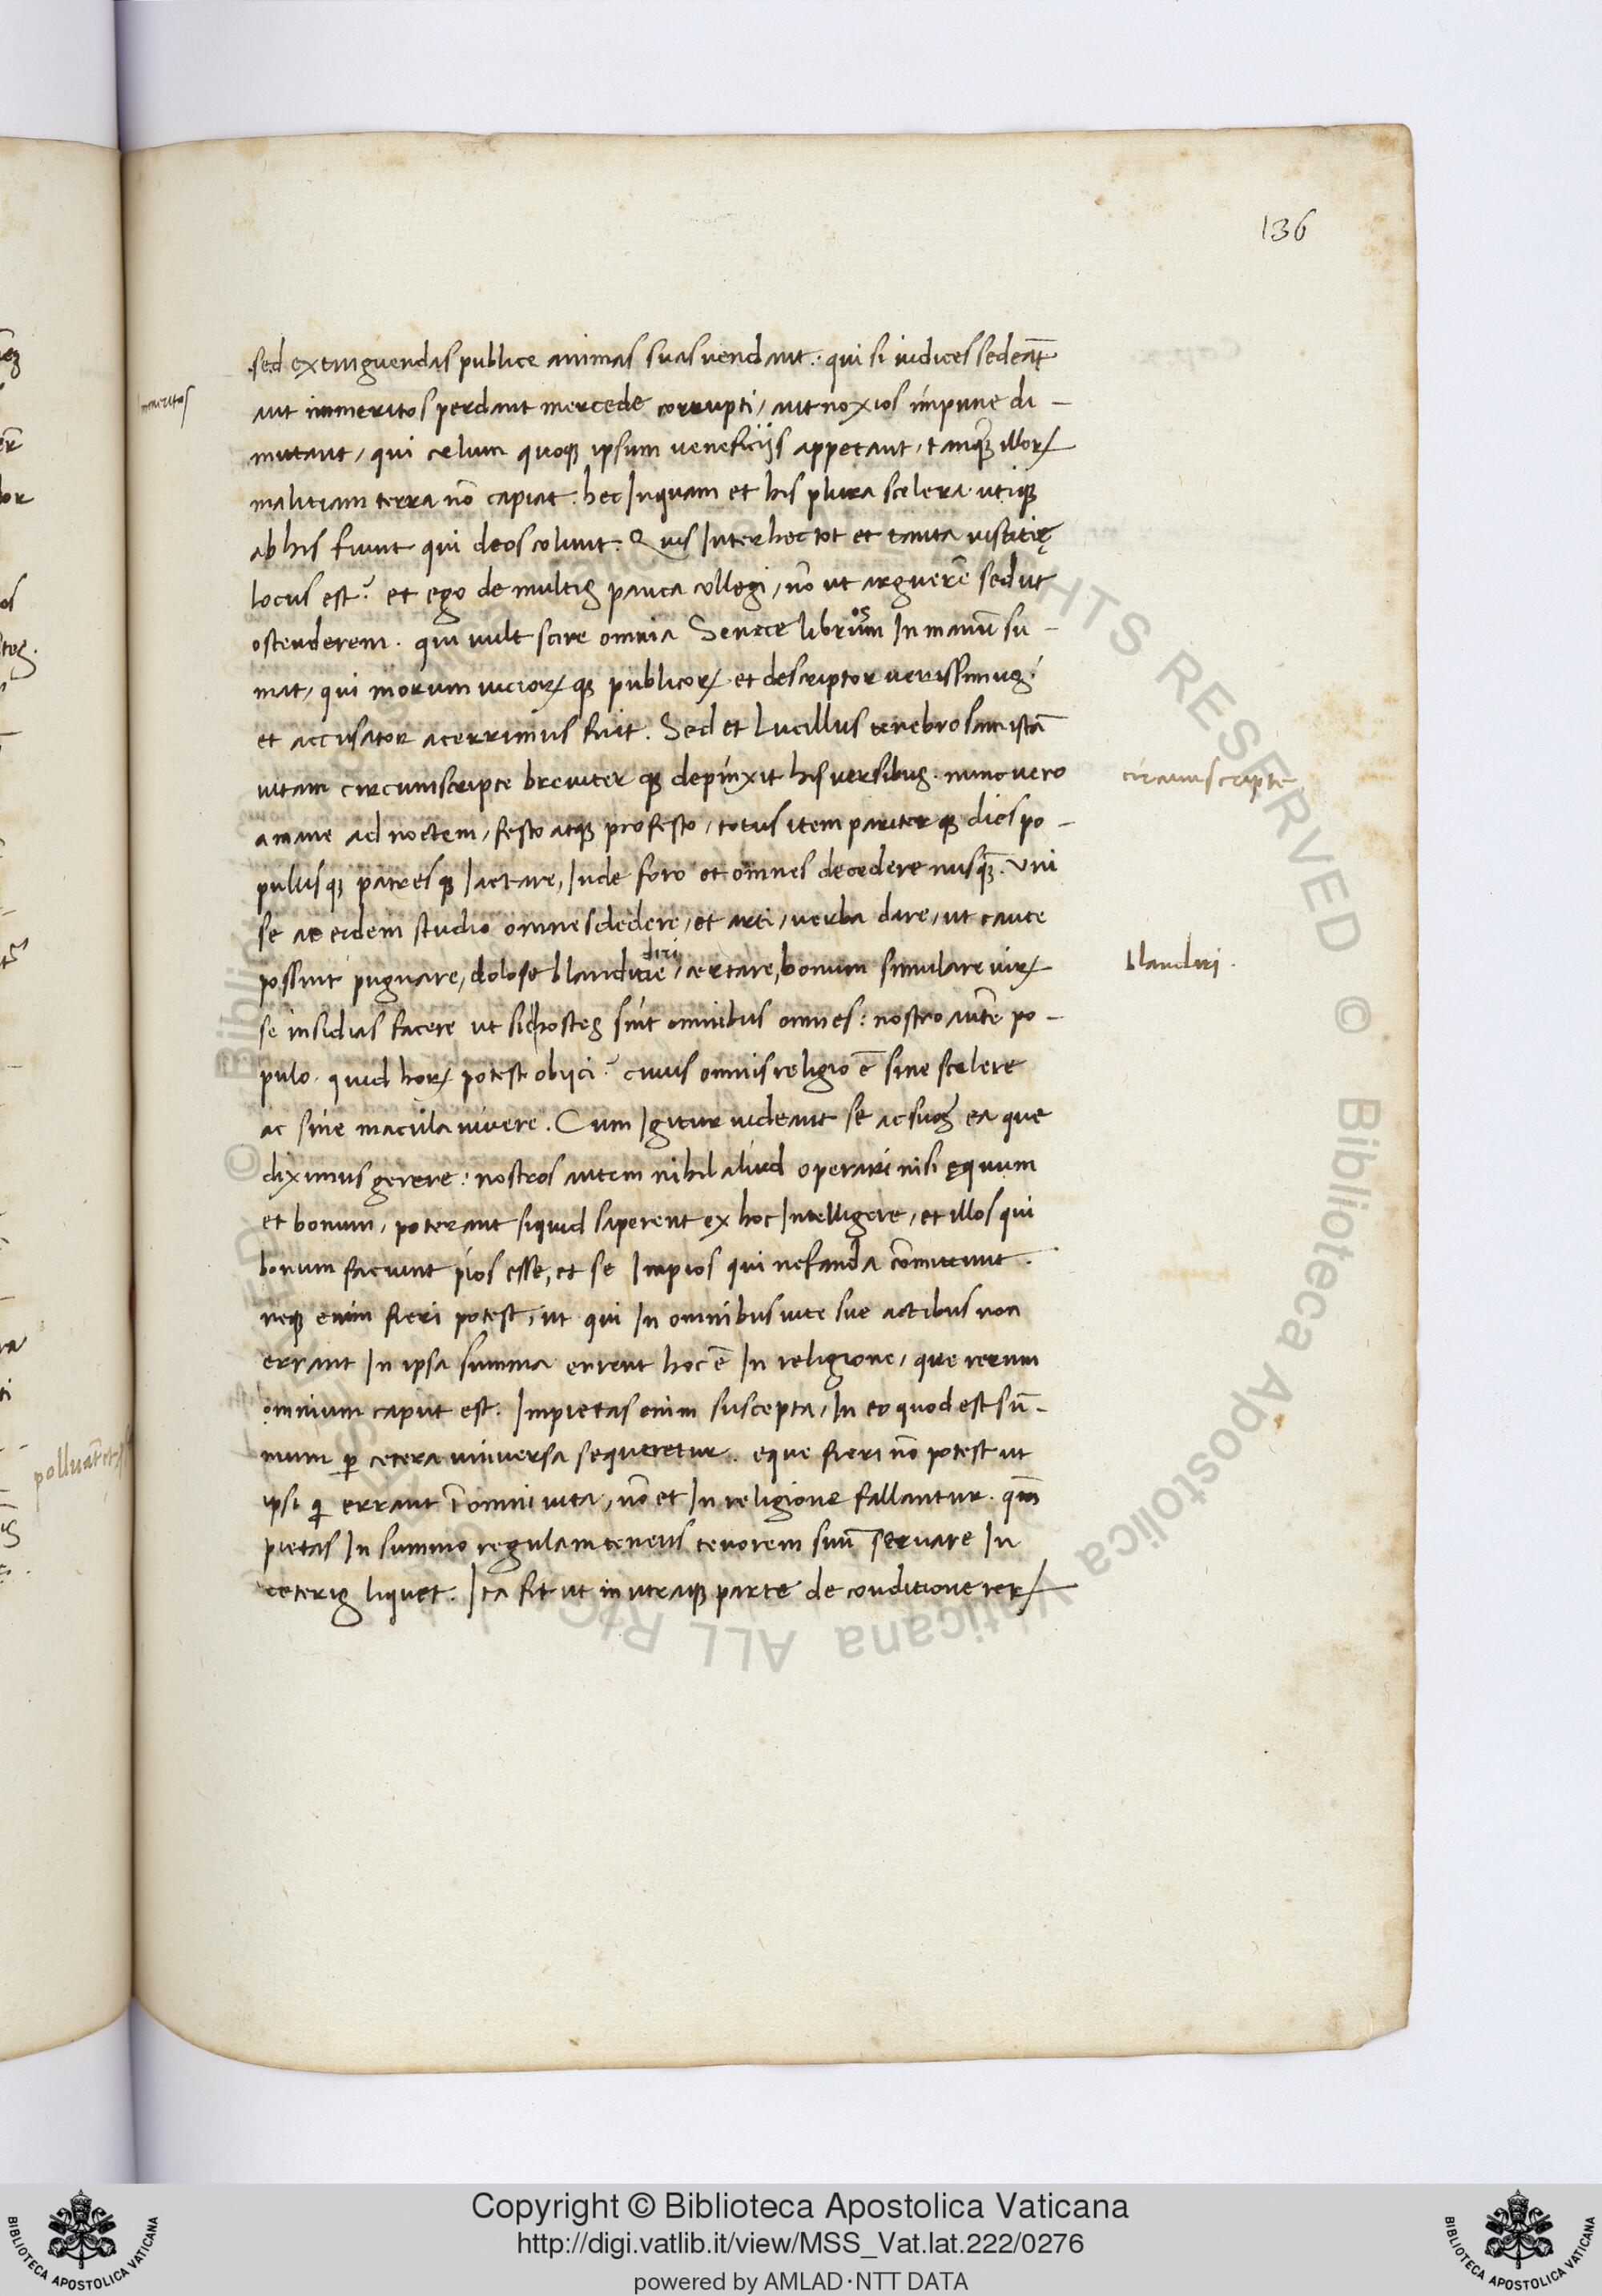 136
sed extinguendas publice animas suas uendant: qui si iudices sedeāt
immeritos
aut immeritos perdant mercede corrupti, aut noxios impune di-
mutant, qui celum quoqꝫ ipsum ueneficijs appetant, tanqꝫ illoꝝ
malitiam terra nō capiat. hec Inquam et his plura scelera utiqꝫ
ab his fiunt qui deos colunt. Quis Inter hec tot et tanta iustitię
locus est? et ego de multis pauca collegi, nō ut arguerē sed ut
ostenderem. qui uult scire omnia Senece librum In manū su-
os
mat, qui morum uicioꝝ qꝫ publicoꝝ et descriptor uerissimus
et accusator acerrimus fuit. Sed et Lucillus tenebrosam istā
uitam circumscripte breuiter qꝫ depinxit his uersibus. nunc uero
circumscripte
a mane ad noctem, festo atqꝫ profesto, totus item pariter qꝫ dies po-
pulusqꝫ patresqꝫ Iactare, Inde foro et omnes decedere nusqꝫ. Uni
se ac eidem studio omnes dedere, et arti, uerba dare, ut caute
possint pugnare, dolose blanditie, certare, bonum simulare uiꝝ
diri
blandiri.
se insidias facere ut si hostes sint omnibus omnes: nostro autē po-
pulo. quid hoꝝ potest obijci? cuius omnis religio ē sine scelere
ac sine macula uiuere. Cum Igitur uideant se ac suos ea que
diximus gerere: nostros autem nihil aliud operari nisi ęquum
et bonum, poterant siquid saperent ex hoc Intelligere, et illos qui
bonum faciunt pios esse, et se Impios qui nefanda cōmitunt.
neqꝫ enim fieri potest, ut qui In omnibus uite sue actibus non
errant In ipsa summa errent hoc ē In religione, que rerum
omnium caput est. Impietas enim suscepta, In eo quod est sū-
mum ꝑ cetera uniuersa sequeretur. eque fieri nō potest ut
ipsi q errant ī omni uita, nō et In religione fallantur. qm̄
pietas In summo regulam tenens tenorem suū seruare In
ceteris liquet. Ita fit ut in utraqꝫ parte de conditione reꝝ
Copyright © Biblioteca Apostolica Vaticana
http://digi.vatlib.it/view/MSS_Vat.lat.222/0276
powered by AMLAD·NTT DATA
BIBLIOTECA APOSTOLICA VATICANA
BIBLIOTECA APOSTOLICA VATICANA